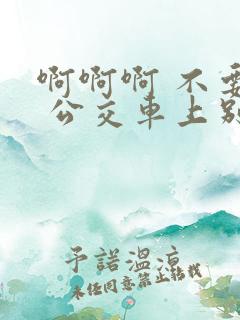 啊啊啊 不要
公交车上别
予諾溫涼
未经同意禁止转载